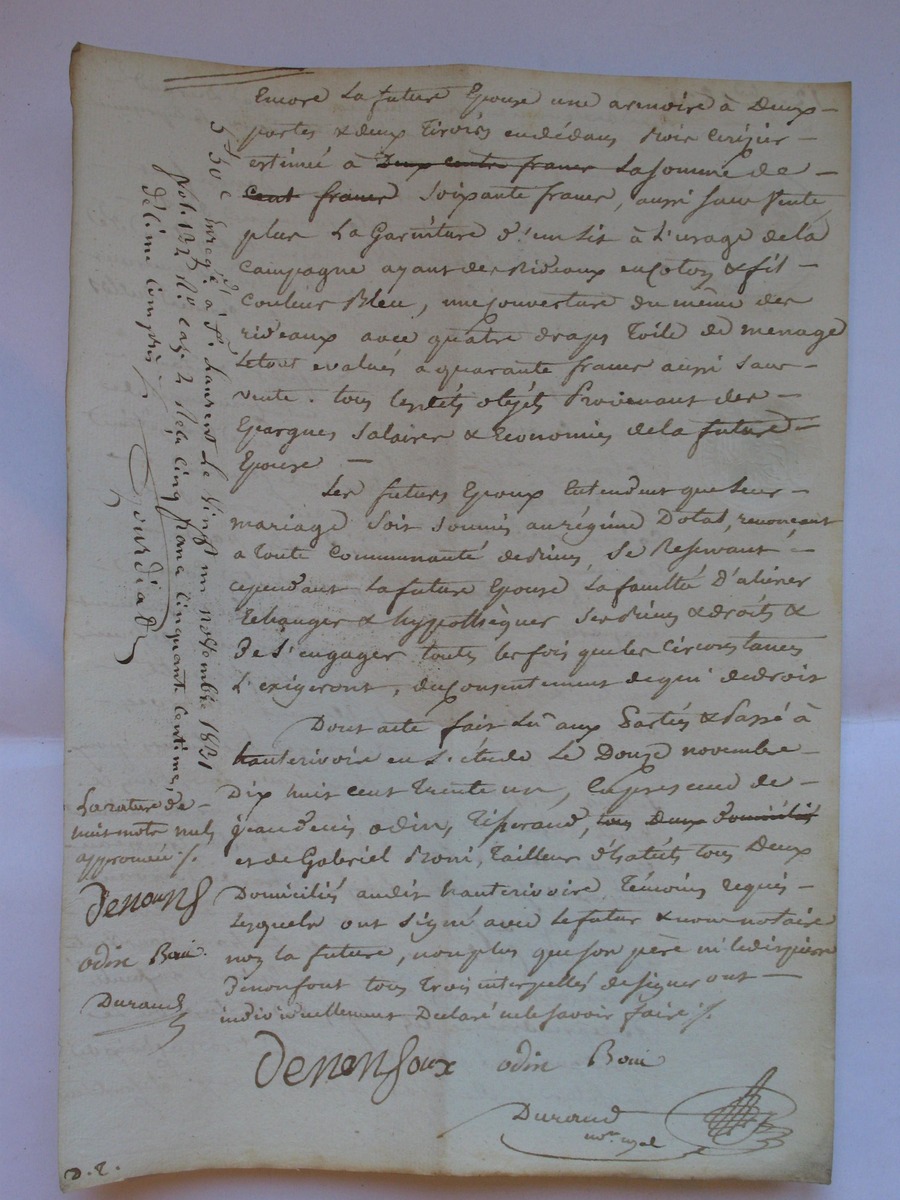 Encore la future Epouse une armoire à Deux
portes & deux tiroirs en dédans Bois cerisier
estimée à Deux cents francs la somme de
cent francs Soixante francs, aussi sans vente,
plus la Garniture d'un Lit à L'usage de la
Campagne ayant des Rideaux en Coton & fil
Couleur Bleu, une couverture du même des
rideaux avec quatre draps toile de ménage
le tout evalués à quarante francs aussi sans
vente. tous lesdits objets Provenant des
Epargnes Salaires & Economies de la future
Epouse
Les futurs Epoux Entendent que leur
mariage Soit Soumis au régime Dotal, renonçant
a toute Communauté de biens, Se Reservant
cependant La future Epouse La faculté D'aliéner
Echanger & hypothèquer Ses Biens & droits &
De S'engager toutes les fois que les Circonstances
L'exigeront, du Consentement de qui de droit
Dont acte fait Lu aux Parties & Passé à
hauterivoire en L'étude Le Douze novembre
Dix huit cent trente un, En présence de
jean denis odin, Tisserand, tous Deux domiciliés
et de Gabriel Boni, Tailleur d'habits tous Deux
Domiciliés audit hauterivoire, Témoins requis
Lesquels ont Signé avec Le futur & nous notaire
non la future, non plus que son père ni ledit pierre
Denonfont tous Trois interpellés de signer ont
individuellement Declaré ne le savoir faire /.
Denonfoux odin Boni
Durand
not. royal
5 f 50 c Enregé. à St. Laurent Le Vingt un novembre 1831
fol. 132 Ro. cas. 2 Reçu Cinq francs Cinquante Centimes,
décime compris /.
La rature de
huit mots nuls
approuvée /.
Denonf
odin Boni
Durand
D. T.